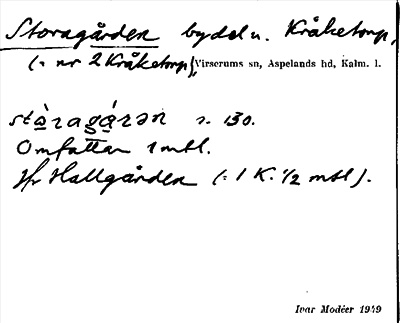 Storagården bydel u. Kråketorp,
(= nr 2 Kråketorp), Virserums sn, Aspelands hd, Kalm. l.
stòragá̱rən s. 130.
Omfattar 1 mtl.
Jfr Hallgården (= 1 K. 1/2 mtl).
Ivar Modéer 1949